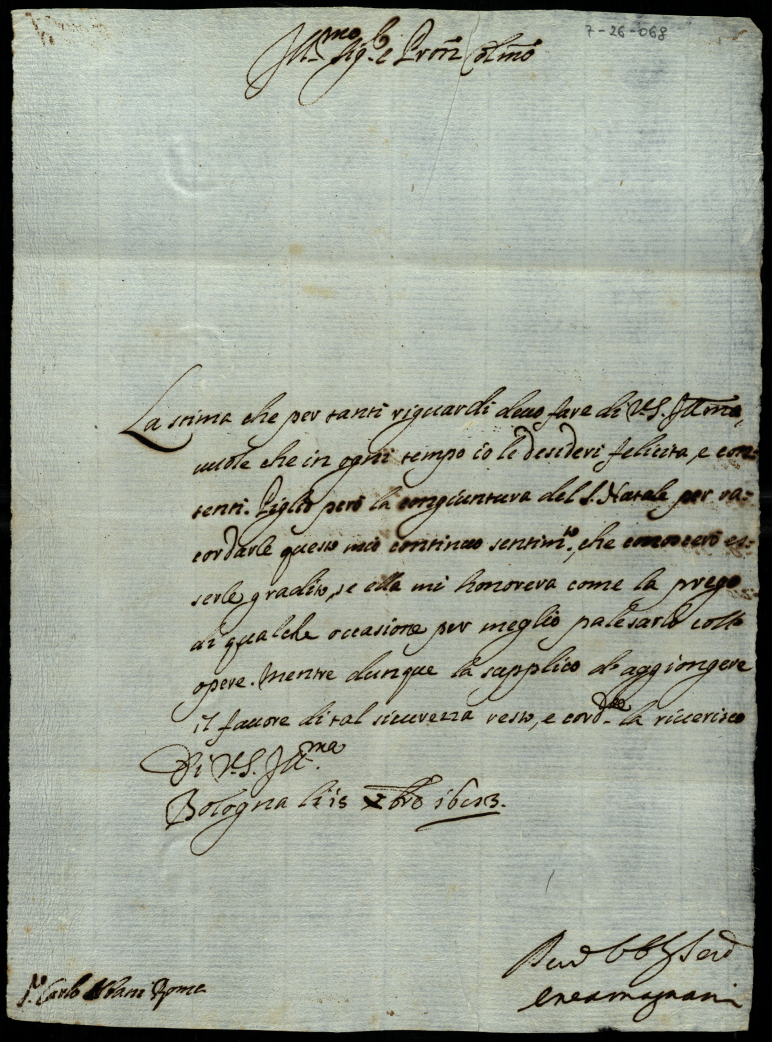 7-26-068
Ill.mo Sig.r e Pron Colmo
La stima che per tanti riguardi deuo fare di V.S. Ill.ma,
uuole che in ogni tempo io le desideri felicità, e con=
tenti. Piglio però la congiuntura del S. Natale per ra=
cordarle questo mio continuo sentim.to, che conoscerò es=
serle gradito, se ella mi honorerà come la prego
di qualche occasione per meglio palesarlo colle
opere. Mentre dunque la supplico de aggiongere
il fauore di tal sicurezza resto, e cord.te la riuerisco
Di V.S. Ill.ma
Bologna li 18 Xbre
Ser.
enea magnani
S.r Carlo Albani Roma